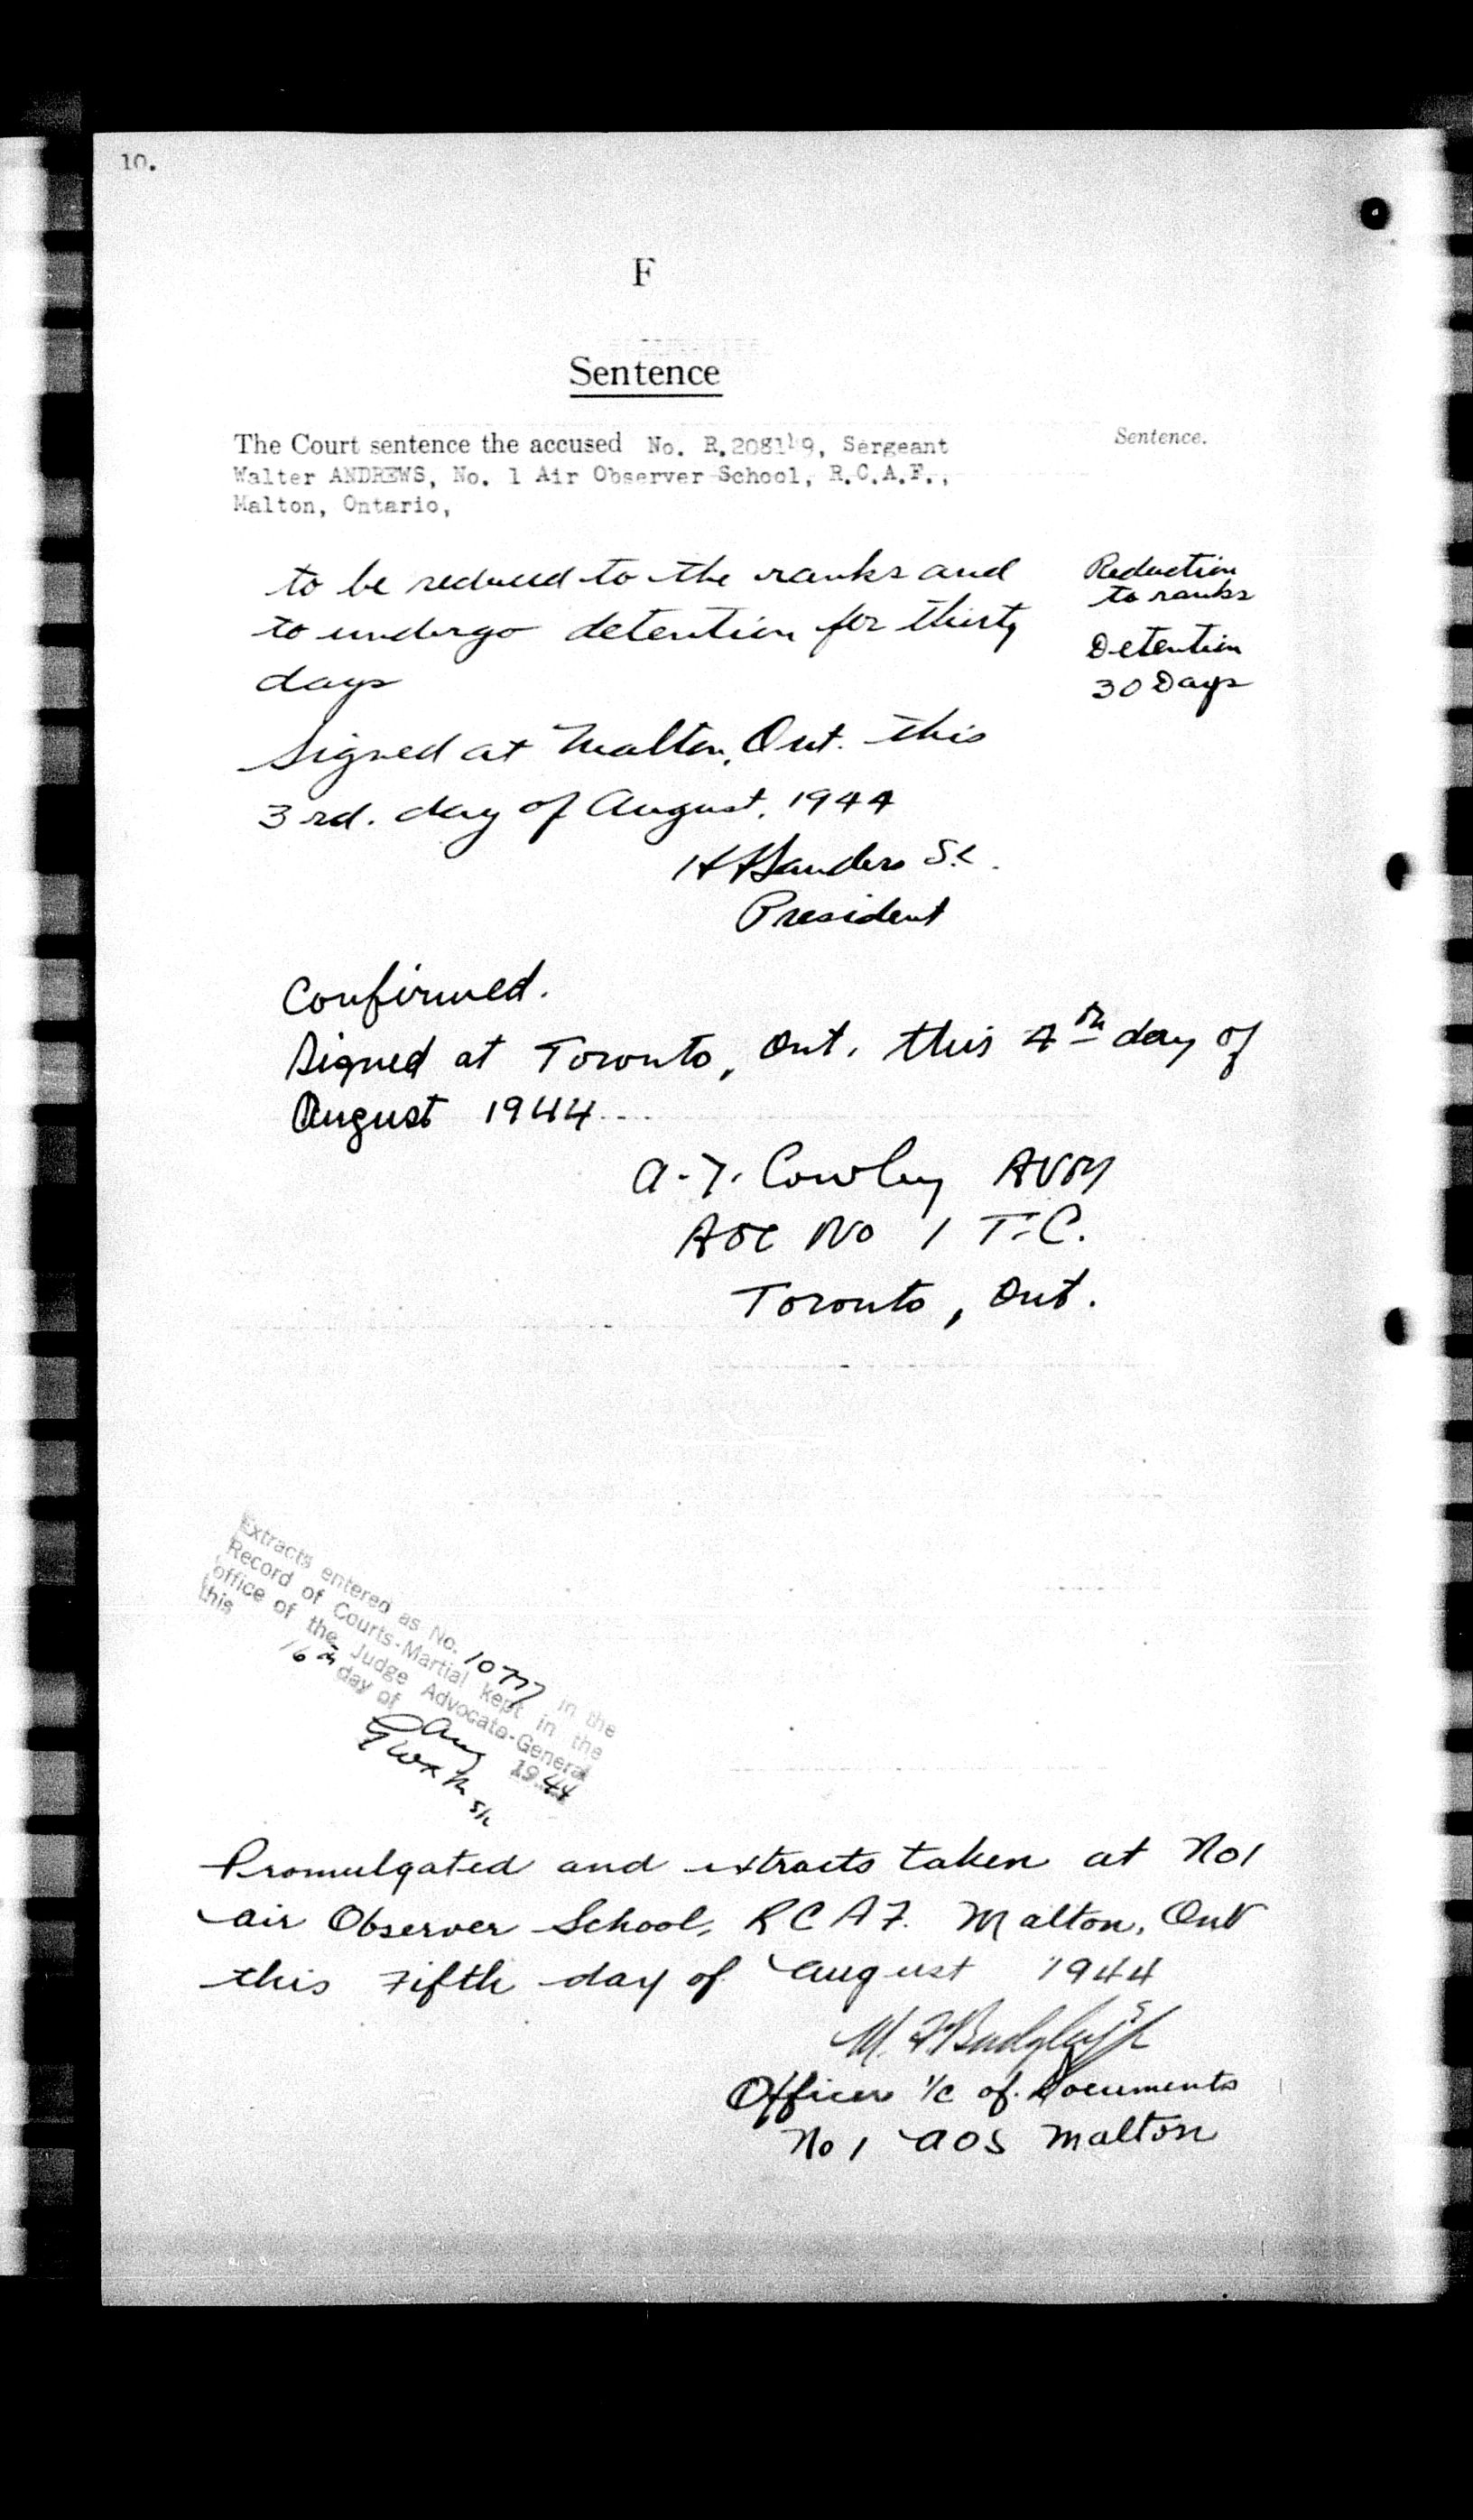 10.
F
Sentence
The Court sentence the accused No. R.208149, Sergeant
Sentence.
Walter ANDREWS, No. 1 Air Observer School, R.C.A.F.,
Malton, Ontario,
to be reduced to the ranks and
to undergo detention for thirty
days
Reduction
to ranks
Detention
30 Days
Signed at Malton, Ont. this
3rd. day of August, 1944
Sanders S.L.
President
Confirmed.
Signed at Toronto, Ont. this 4th day of
August 1944
A.F. Cowley AVM
AOC No 1 T.C.
Toronto, Ont.
Extracts entered as No. 10777 in the
Record of Courts-Martial kept in the
office of the Judge Advocate-General
this 16th day of Aug 1944
S/L
Promulgated and extracts taken at No1
Air Observer School, RCAF. Malton, Ont
this Fifth day of August 1944
Officer i/c of Documents
No 1 AOS Malton